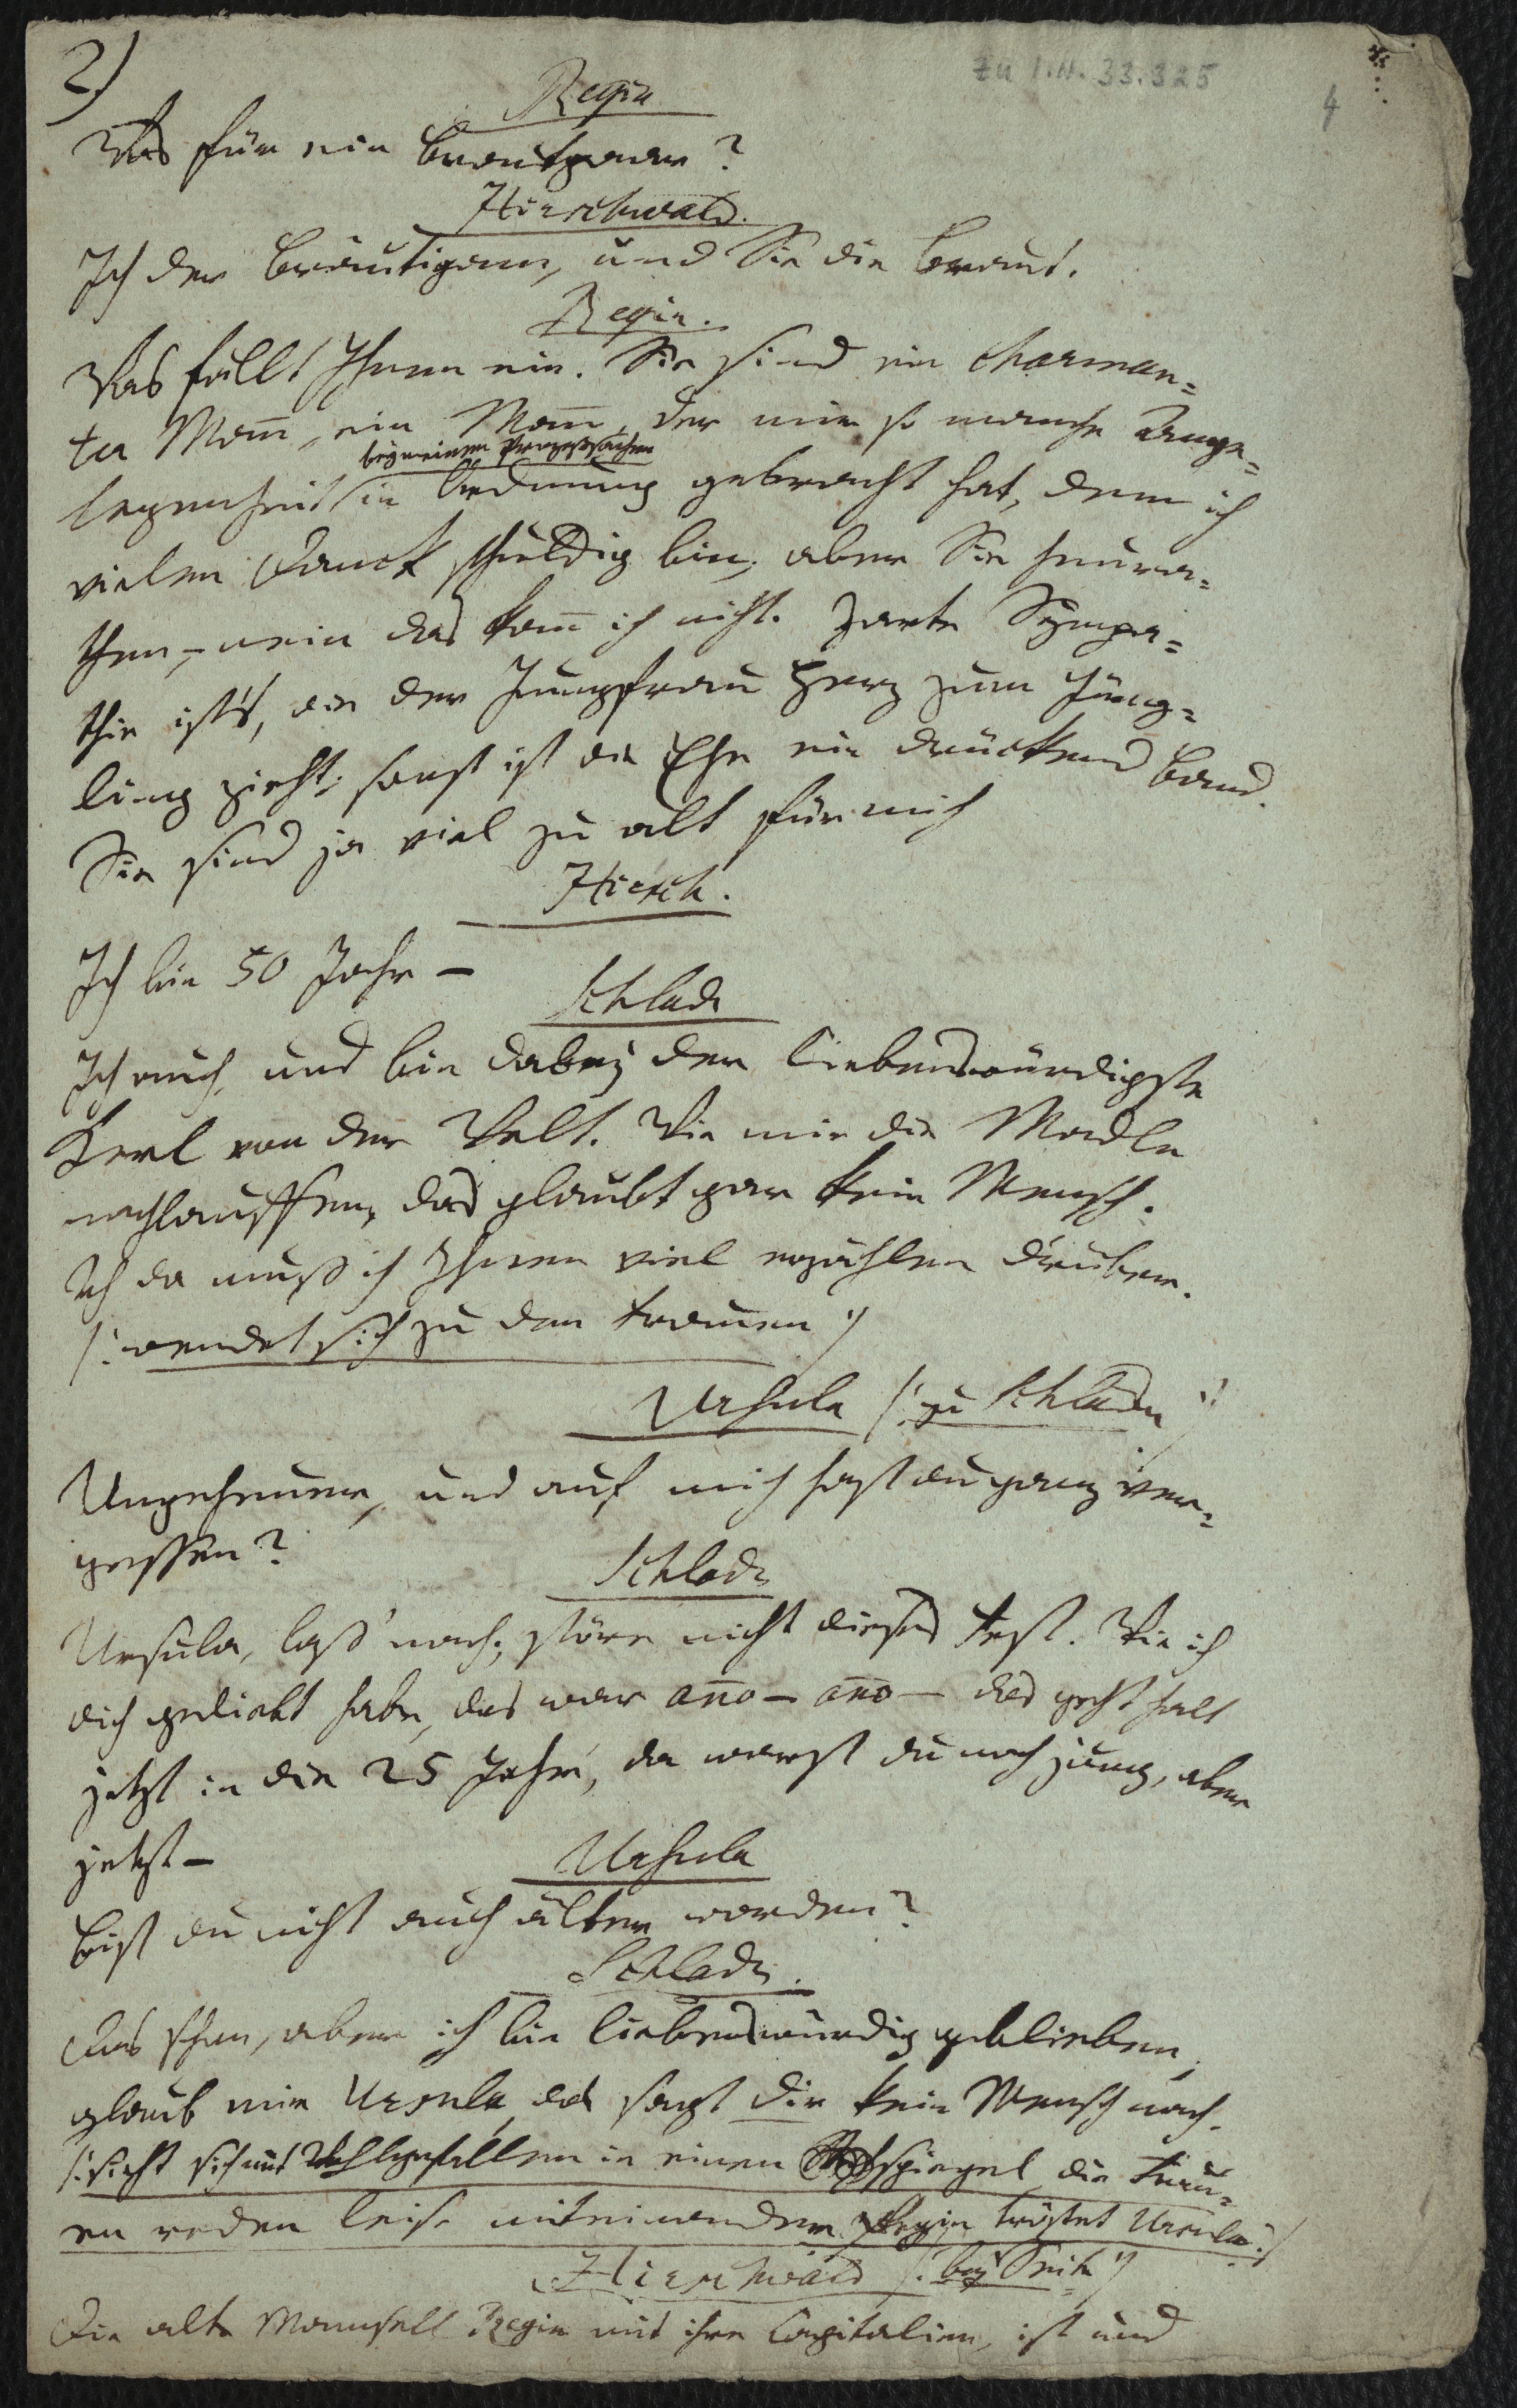 2)
zu I.N. 33.325
4
Regin
Was für ein Brautpaar?
Hirschwald.
Ich der Bräutigam, und Sie die Braut.
Regin.
Was fällt Ihnen ein. Sie sind ein charman=
ter Mañ, ein Mañ, der mir so manche Ange=
bey meinen Prozeßsachen
legenheit in Ordnung gebracht hat, dem ich
vielen Danck schuldig bin, aber Sie heura=
then, – nein das kañ ich nicht. Zarte Sympa=
thie ist's, die der Jungfrau Herz zum Jüng=
ling zieht; sonst ist die Ehe ein drückend Band.
Sie sind ja viel zu alt für mich
Hirsch.
Ich bin 50 Jahr –
Schlads
Ich auch, und bin dabey der liebenswürdigste
Kerl von der Welt. Wie mir die Madln
nachlauffen, das glaubt gar kein Mensch.
Ich da muß ich Ihnen viel erzählen drüber.
/: wendet sich zu den Frauen :/
Ursula /: zu Schladn :/
Ungeheuer, und auf mich hast du ganz ver=
gessen?
Schlads
Ursula, laß nach; störe nicht dieses Fest. Wie ich
dich geliebt habe, das war año – año – das geht halt
jetzt in die 25 Jahr, da warst du noch jung, aber
jetzt –
Ursula
Bist du nicht auch älter worden?
Schlads.
Das schon, aber ich bin liebenswürdig geblieben,
glaub mir Ursula, das sagt dir kein Mensch nach.
/: sieht sich mit Wohlgefallen in einen Sackspiegel die Frau=
en reden leise miteinander, Regin tröstet Ursula :/
Hirschwald /: bey Seite :/
Die alte Mamsell Regin mit ihre Capitalien, ist und